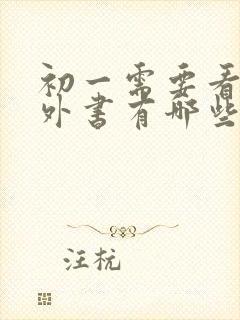 初一需要看
外书有哪些
汪杭